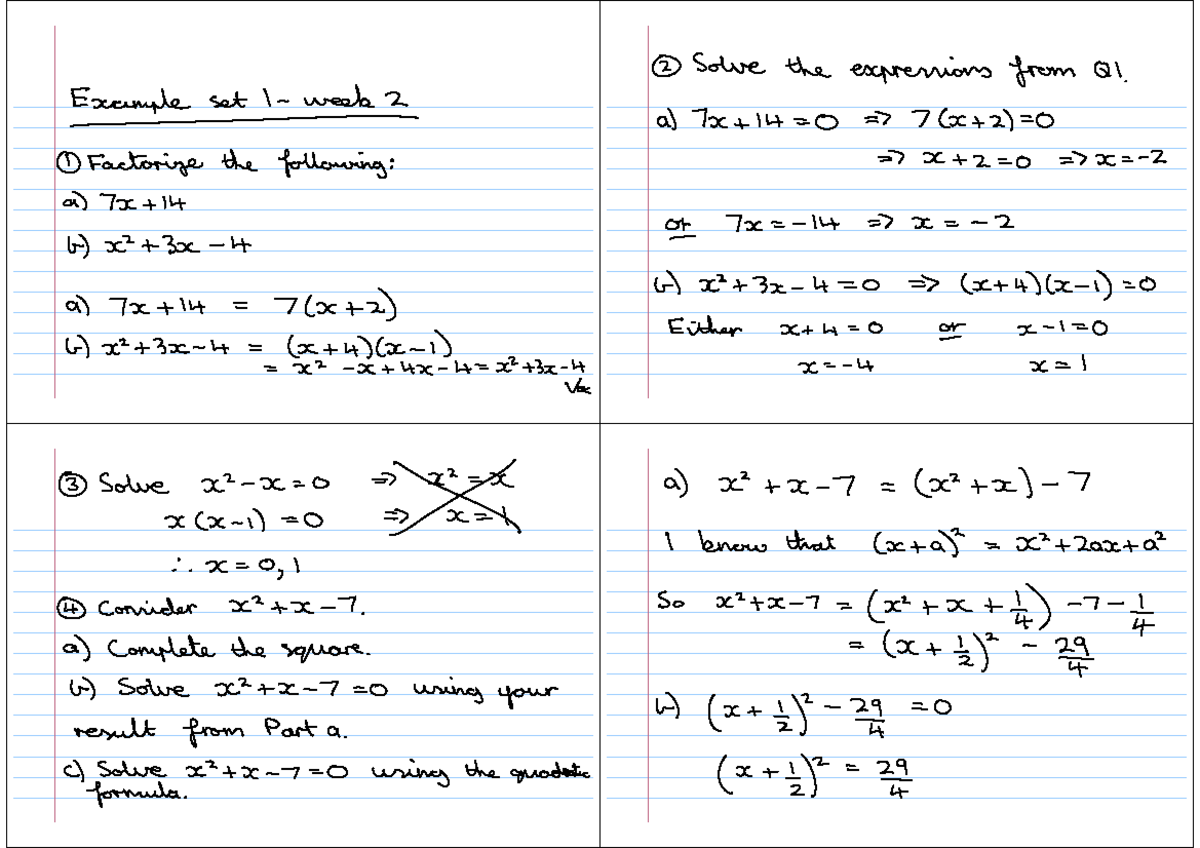 Example set 1 - week 2
① Factorize the following:
a) 7x + 14
b) x² + 3x - 4
a) 7x + 14 = 7(x + 2)
b) x² + 3x - 4 = (x + 4)(x - 1)
= x² - x + 4x - 4 = x² + 3x - 4
② Solve the expressions from Q1.
a) 7x + 14 = 0 => 7(x + 2) = 0
=> x + 2 = 0 => x = -2
or 7x = -14 => x = -2
b) x² + 3x - 4 = 0 => (x + 4)(x - 1) = 0
Either x + 4 = 0 or x - 1 = 0
x = -4 x = 1
③ Solve x² - x = 0 => x² = x
x(x - 1) = 0 => x = 1
∴ x = 0, 1
④ Consider x² + x - 7.
a) Complete the square.
b) Solve x² + x - 7 = 0 using your
result from Part a.
c) Solve x² + x - 7 = 0 using the quadratic
formula.
a) x² + x - 7 = (x² + x) - 7
I know that (x + a)² = x² + 2ax + a²
So x² + x - 7 = (x² + x + 1/4) - 7 - 1/4
= (x + 1/2)² - 29/4
b) (x + 1/2)² - 29/4 = 0
(x + 1/2)² = 29/4